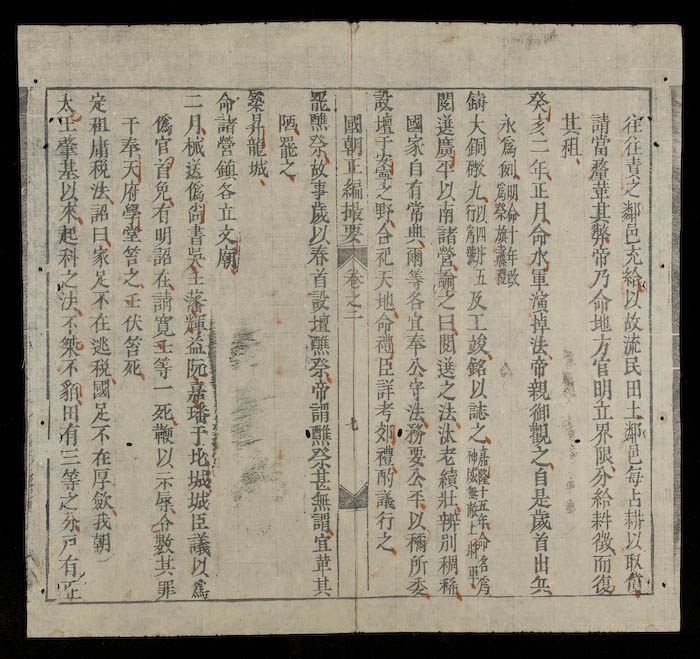 往往責之鄰邑充給以故流民田土鄰邑每占耕以取償
請當釐革其弊帝乃命地方官明立界限分給耕徵而復
其租
癸亥二年正月命水軍演掉法帝親御觀之自是歲首出兵
永爲例明命十年改爲祭旗纛禮
鑄大銅礮九以四辨五行爲號及工竣銘以誌之嘉隆十五年命名爲神威無敵上將軍
閱選廣平以南諸營諭之曰閱選之法汰老續壯辨別稠稀
國家自有常典爾等各宜奉公守法務要公平以稱所委
設壇于安寧之野合祀天地命禮臣詳考郊禮酌議行之
國朝正編撮要 卷之二 九
罷醮祭故事歲以春首設壇醮祭帝謂醮祭甚無謂宜革其
陋罷之
築昇龍城
命諸營鎮各立文廟
二月械送僞尚書吳壬潘輝益阮嘉璠于北城城臣議以爲
僞官首免有明詔在請寬壬等一死鞭以示辱令數其罪
干奉天府學堂笞之壬伏笞死
定租庸税法詔曰家足不在逃税國足不在厚斂我朝
太王肇基以來起科之法不桀不貊田有三等之分戶有正